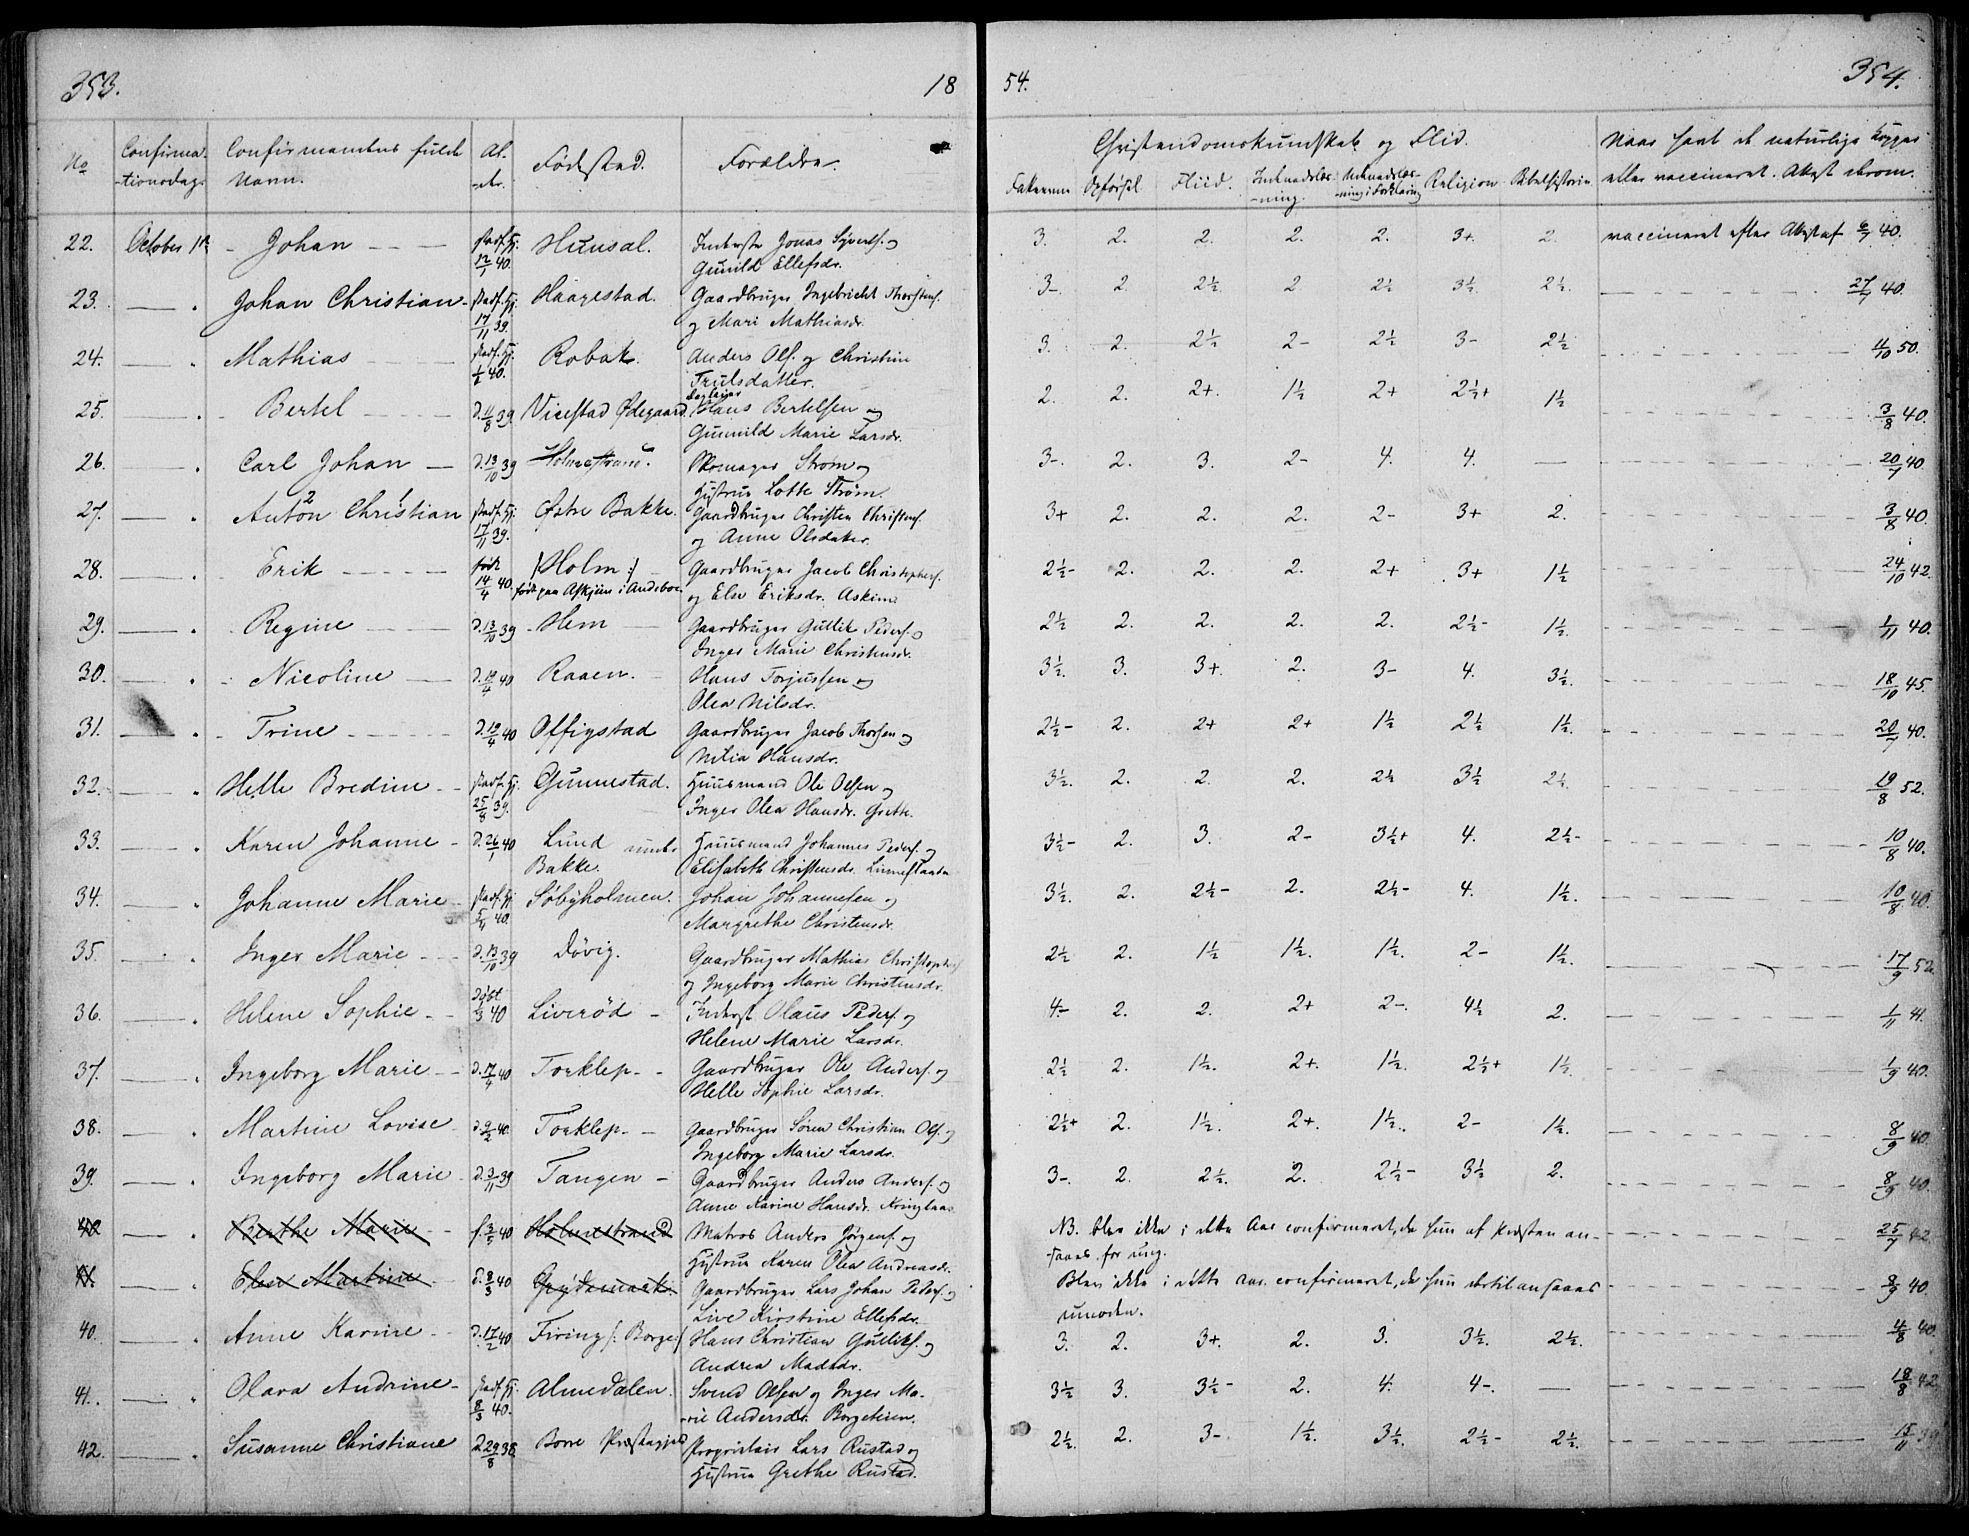 353. 18 54. 354.
No Confirma-tionsdag. Confirmandens fulde Navn. Al-der. Fødested. Forældre. Christendomskundskab og Flid. Naar havt de naturlige Kopper
eller vaccineret. Attest derom.
Opførsel Fliid. Religion Bibelhistorie
22. October 1ste Johan 12/1 40. Huusal. Inderste Jonas Syvertss. og 3. 2. 2. 2. 2. 3+ 2. vaccineret efter Attest af 6/7 40.
Gunild Ellefsdr.
23. Johan Christian 17/11 39. Haagestad. Gaardbruger Ingebricht Thorstens. 3-. 2. 2½. 2. 2½ 3½. 2½. 27/7 40.
og Mari Mathiasdr.
24. Mathias 40. Robak. Anders Ols. og Christine 3. 2. 2½ 2- 2½ 3- 2½ 11/10 50.
Trulsdatter.
25. Bertel D. 11/8 39 Vivestad Ødegaard. Hans Bertelsen og 2. 2. 2+ 1½ 2+ 2½+ 1½ 3/8 40.
Gunnild Marie Larsdr.
26. Carl Johan D. 13/10 39 Holmestrand. Skomager Strøm og 3-. 2. 3. 2- 4. 4. — 20/7 40.
Hustrue Lotte Strøm.
27. Anton 2 Christian 1 17/11 39. Østre Bakke. Gaardbruger Christen Christens. 3+ 2. 2. 2. 2- 3+ 2. 3/8 40.
og Anne Olsdatter.
28. Erik født 14/4 40 Holm Gaardbruger Jacob Christophers. 2½- 2. 2. 2. 2+ 3+ 1½ 24/10 42.
født paa Askjem i Andeboe og Else Eriksdr. Askim
29. Regine D. 13/10 39 Hem Gaardbruger Gullik Peders. og 2½ 2. 2. 2. 2. 2½- 1½. 1/11 40.
Inger Marie Christensdr.
30. Nicoline 40 Raaen. Hans Torjussen og 3½. 3. 3+. 2. 3- 4. 3½. 18/10 45.
Olea Nilsdr.
31. Trine D. 19/4 40 Offigstad Gaardbruger Jacob Thorsen og 2½- 2. 2+ 2+ 1½ 2½ 1½. 20/7 40.
Milia Hansdr.
32. Helle Bredine 25/8 39. Gunnestad. Huusmand Ole Olsen og 3½. 2. 2. 2. 2½ 3½ 2½ 19/8 52.
Inger Olea Hansdr.
33. Karen Johanne D. 26/1 40 Lund under Huusmand Johannes Peders. og 3½- 2. 3. 2- 3½+ 4. 2½- 10/8 40.
Bakke. Elisabeth Christensdr.
34. Johanne Marie 5/4 40. Søbyholmen. Johan Johannesen og 3½. 2. 2½- 2. 2½- 4. 1½. 10/8 40.
Margrethe Christensdr.
35. Inger Marie D. 13/10 39 Døvig. Gaardbruger Mathias Christophers 2½ 2. 1½ 1½. 1½. 2- 1½. 17/9 52
og Ingeborg Marie Christensdr.
36. Helene Sophie Døbt 40 Liverød Inderst Olaus Peders. og 4.- 2. 2. 2+ 2-. 4½ 2. 1/11 41.
Helene Marie Larsdr.
37. Ingeborg Marie 40 Torklep Gaardbruger Ole Anders. og 2½ 2. 1½. 2+. 1½. 2½+ 1½. 1/9 40.
Helle Sophie Larsdr.
38. Martine Lovise D. 9/2 40. Torklep Gaardbruger Søren Christian Ols. og 2½+ 2. 1½. 2+. 1½. 2- 1½. 8/9 40.
Ingeborg Marie Larsdr.
39. Ingeborg Marie D. 3/11 39 Tangen Gaardbruger Anders Anders. og 3-. 2. 2½. 2. 2½- 3½ 2. 8/9 40.
Anne Karine Hansdr.
40 Berthe Marie f. 3/5 40 Holmestrand Matros Anders Jørgens. og NB. blev ikke i dette Aar confirmeret, da hun af Præsten an- 25/7 42
Hustrue Karen Olea Andreasdr. -saaes for ung.
41 Else Martine D. 8/3 40 Gaardbruger Lars Johan Peders. og Blev ikke i dette Aar confirmeret, da hun dertil ansaaes 8/9 40.
Live Kirstine Ellefsdr. umoden.
40. Anne Karine D. 17/2 40 Firing (: Borge :) Hans Christian Gulliks. og 3. 2. 3+. 2. 3. 3½. 2½. 4/8 40.
Andrea Madsdr.
41. Olava Andrine 8/3 40. Almedalen. Svend Olsen og Inger Ma- 3½ 3. 3½- 2. 4. 4-. — 18/8 42
-rie Andersdr.
42. Susanne Christiane D. 29/8 38 Borre Præstegjeld Proprietair Lars Rustad og 2½. 2. 3- 1½. 3½. 2½- 2½. 15/11 39
Hustrue Grethe Rustad.